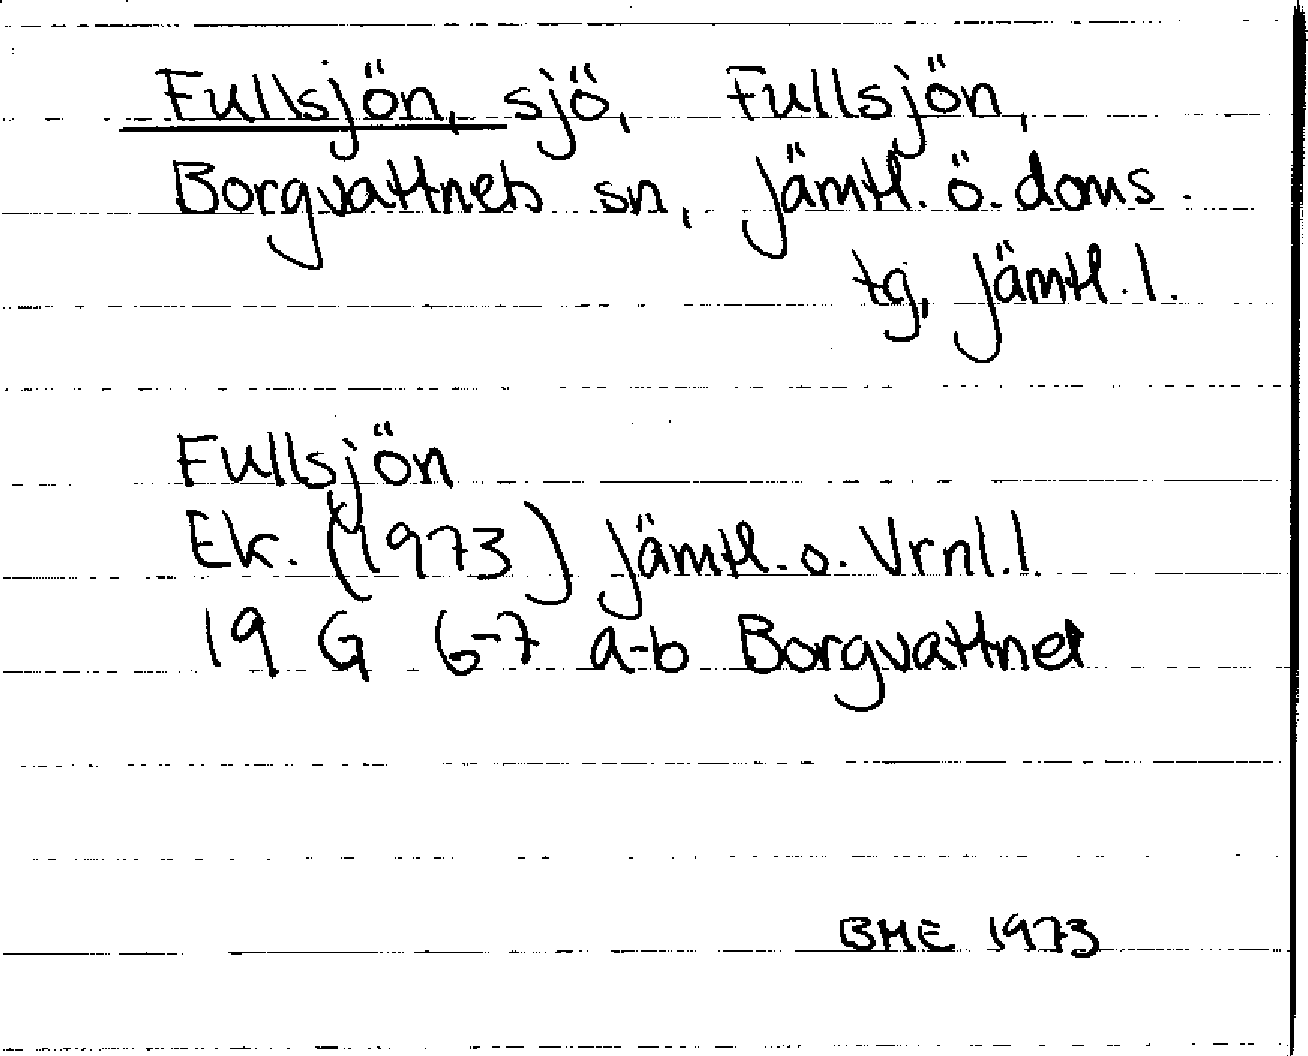 Fullsjön, sjö, Fullsjön,
Borgvattnets sn, Jämtl. ö. doms.
tg, Jämtl. l.
Fullsjön
Ek. (1973) Jämtl. o. Vrnl. l.
19 G 6-7 a-b Borgvattnet
BME 1973